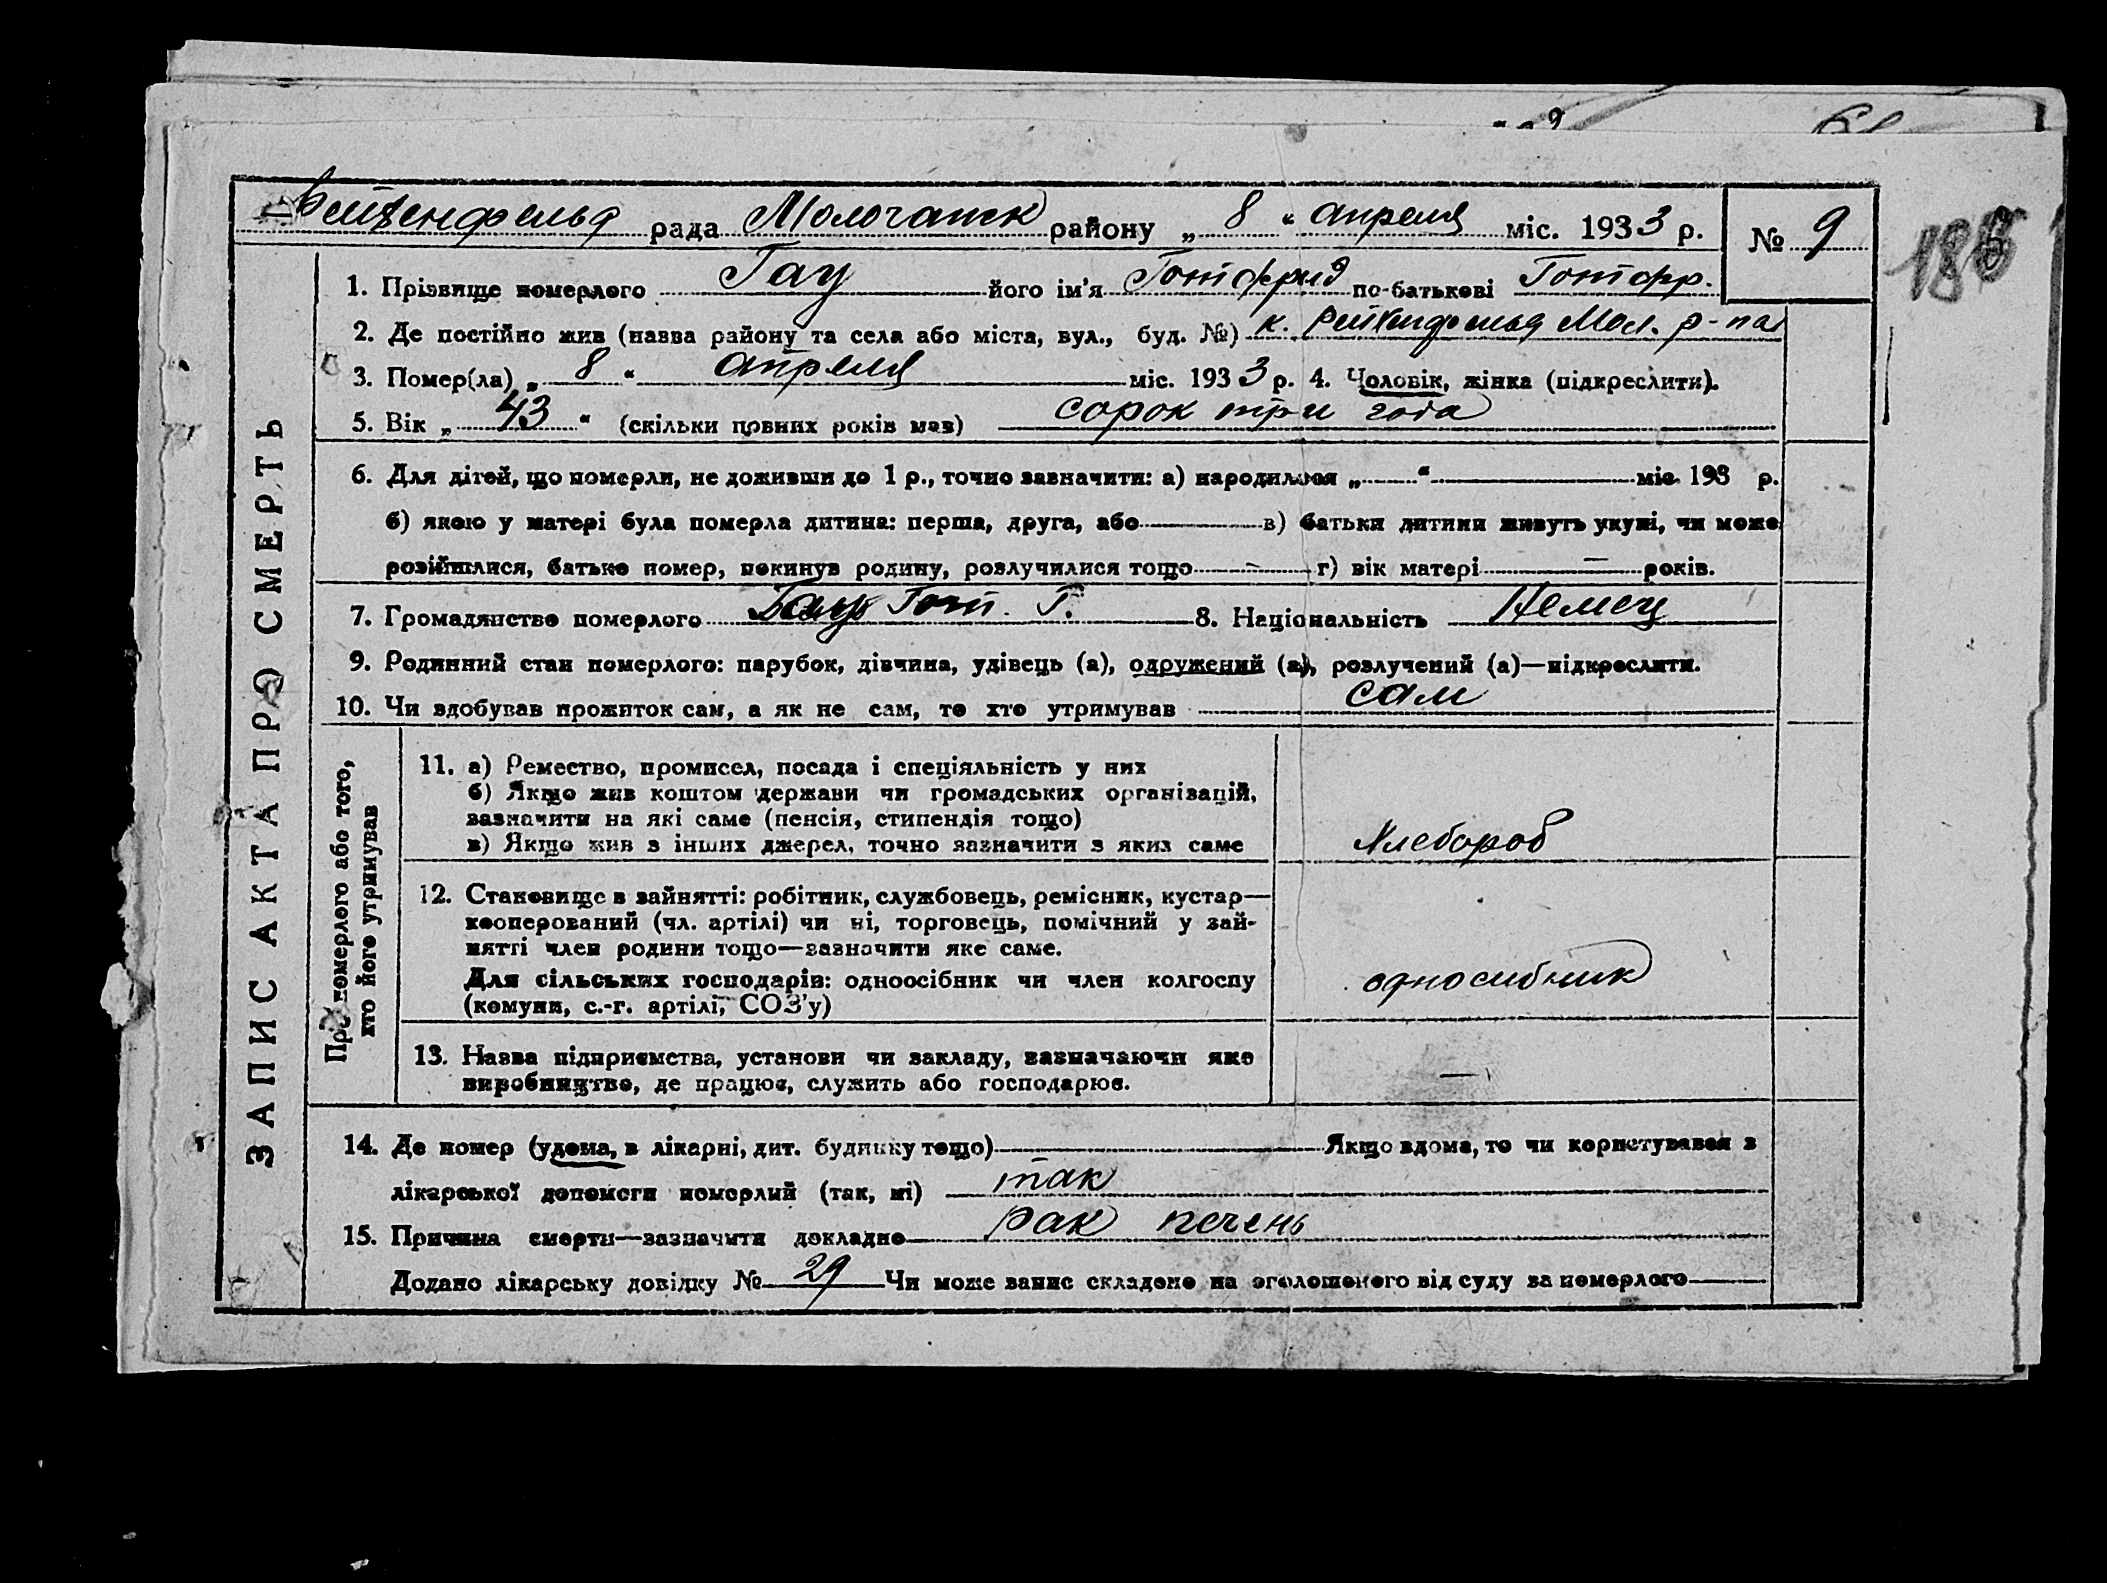 Рейхенфельд рада Молочанск району „ 8 “ апреля міс. 1933 р. № 9
186
1. Прізвище померлого Гау його ім'я Готфрид по-батькові Готфр.
2. Де постійно жив (назва району та села або міста, вул., буд. №) к. Рейхенфельд Мол. р-на
3. Помер(ла) „ 8 “ апреля міс. 1933 р. 4. Чоловік, жінка (підкреслити).
5. Вік „ 43 “ (скільки повних років мав) сорок три года
6. Для дітей, що померли, не доживши до 1 р., точно зазначити: а) народилося „ “ міс. 193 р.
б) якою у матері була померла дитина: перша, друга, або в) батьки дитини живуть укупі, чи може
розійшлися, батько помер, покинув родину, розлучилися тощо — г) вік матері — років.
7. Громадянство померлого Гау Гот. Г. 8. Національність Немец
9. Родинний стан померлого: парубок, дівчина, удівець (а), одружений (а), розлучений (а)—підкреслити.
10. Чи здобував прожиток сам, а як не сам, то хто утримував сам
ЗАПИС АКТА ПРО СМЕРТЬ
Про померлого або того,
хто його утримував
11. а) Ремество, промисел, посада і спеціяльність у них
б) Якщо жив коштом держави чи громадських організацій,
зазначити на які саме (пенсія, стипендія тощо)
в) Якщо жив з інших джерел, точно зазначити з яких саме Хлебороб
12. Становище в зайнятті: робітник, службовець, ремісник, кустар—
кооперований (чл. артілі) чи ні, торговець, помічний у зай-
нятті член родини тощо—зазначити яке саме.
Для сільських господарів: одноосібник чи член колгоспу односибник
(комуни, с.-г. артілі, СОЗ'у)
13. Назва підприємства, установи чи закладу, зазначаючи яке
виробництво, де працює, служить або господарює. —
14. Де помер (удома, в лікарні, дит. будинку тощо) Якщо вдома, то чи користувався з
лікарської допомоги померлий (так, ні) так
15. Причина смерти—зазначити докладно рак печень
Додано лікарську довідку № 29 Чи може запис складено на оголошеного від суду за померлого